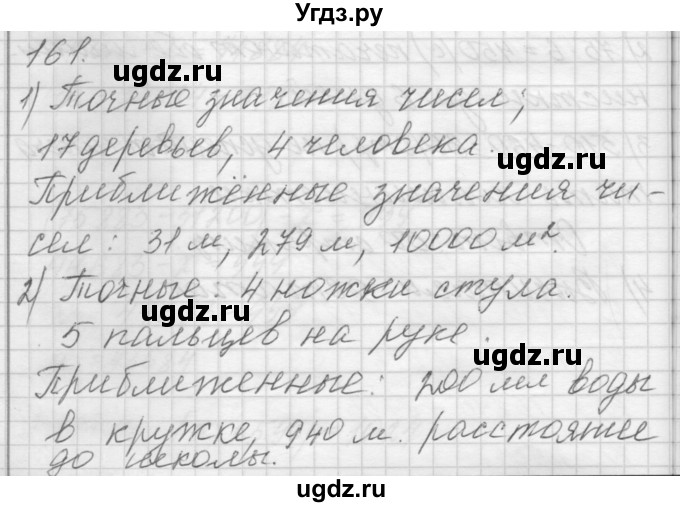 Угдз.ру
161.
1) Точные значения чисел;
17 деревьев, 4 человека.
Приближённые значения чи-
сел: 31 м, 279 м, 10000 м².
2) Точные: 4 ножки стула.
5 пальцев на руке.
Приближенные: 200 мл воды
в кружке, 940 м. расстояние
до школы.
ugdz.ru
ugdz.ru
ugdz.ru
ugdz.ru
ugdz.ru
ugdz.ru
ugdz.ru
ugdz.ru